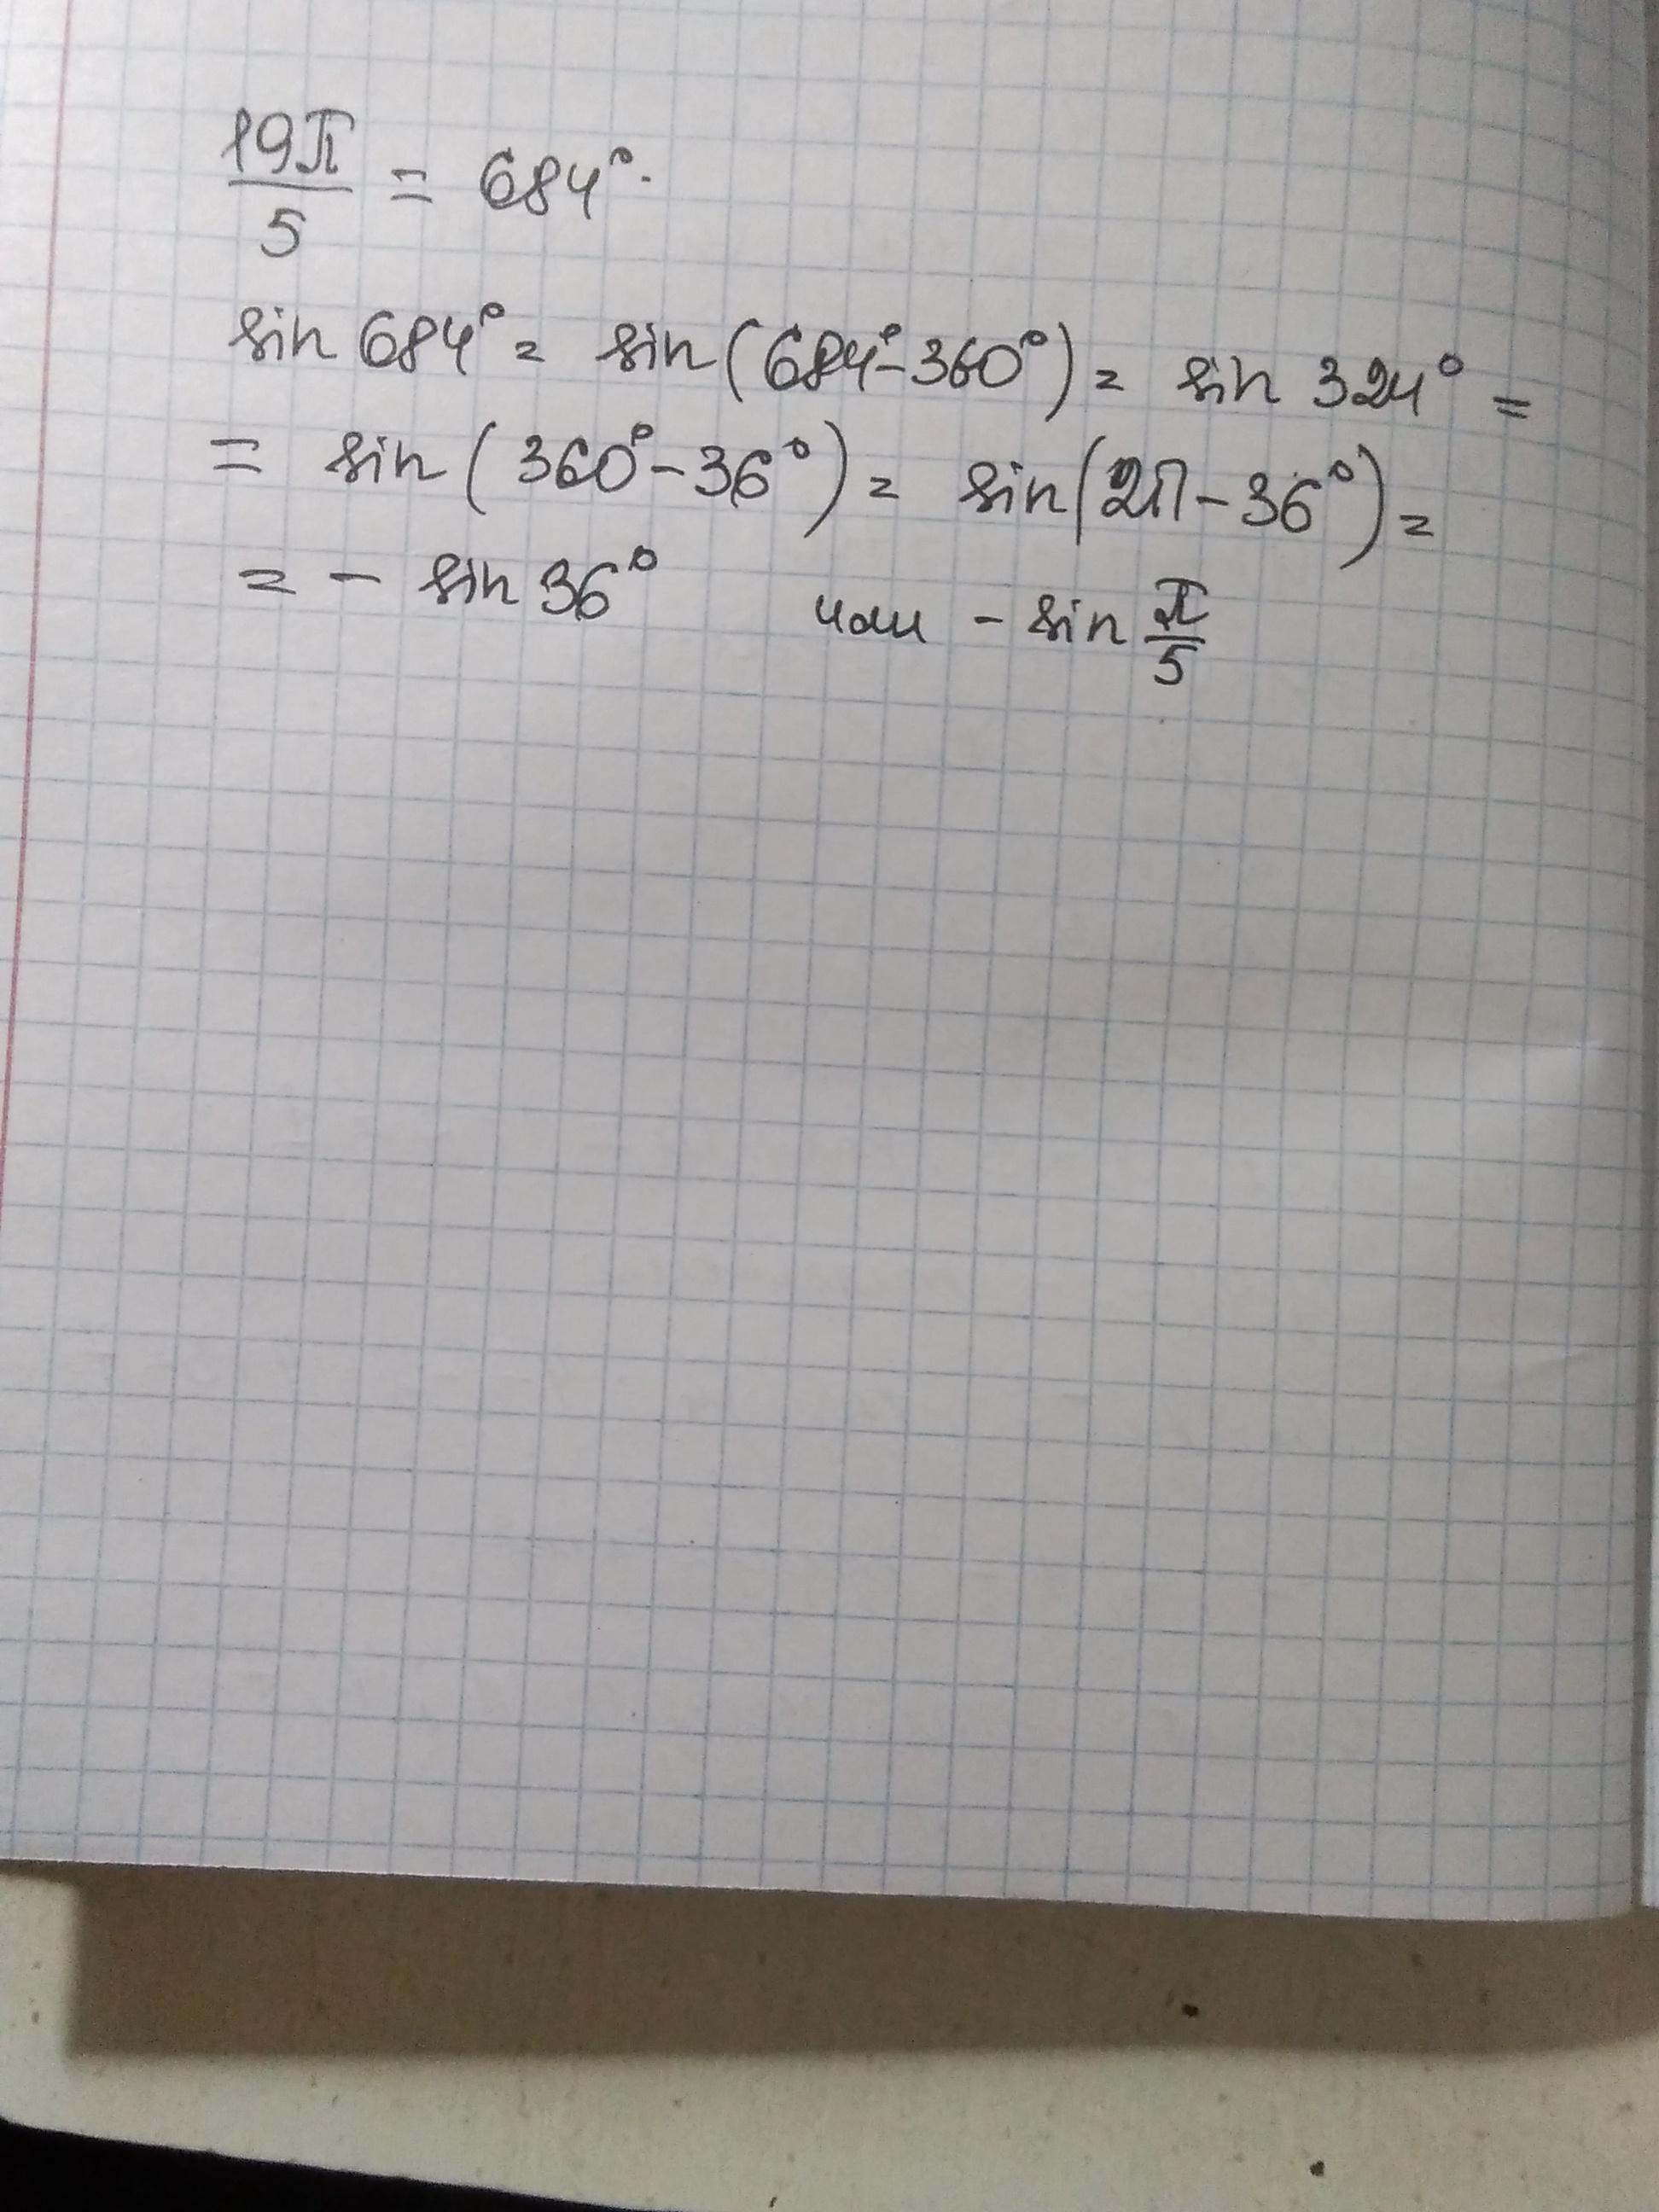 19π/5 = 684°.
sin 684° = sin(684° - 360°) = sin 324° =
= sin(360° - 36°) = sin(2π - 36°) =
= - sin 36° или - sin π/5